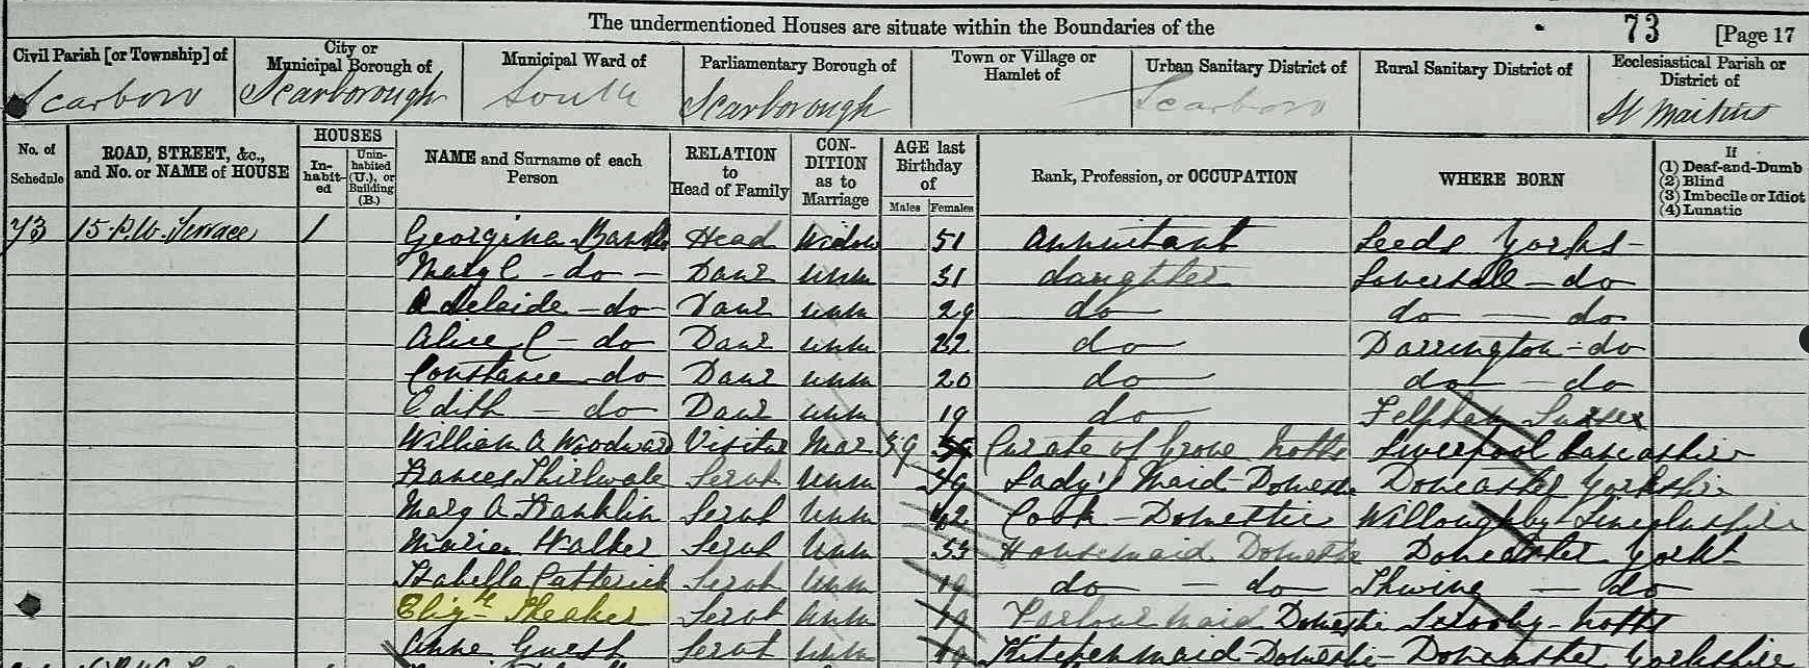 The undermentioned Houses are situate within the Boundaries of the 73 [Page 17
Civil Parish [or Township] of City or Municipal Borough of Municipal Ward of Parliamentary Borough of Town or Village or Hamlet of Urban Sanitary District of Rural Sanitary District of Ecclesiastical Parish or District of
Scarboro Scarborough South Scarborough Scarboro St Martins
No. of Schedule ROAD, STREET, &c., and No. or NAME of HOUSE HOUSES Inhabited Uninhabited (U.), or Building (B.) NAME and Surname of each Person RELATION to Head of Family CONDITION as to Marriage AGE last Birthday of Males Females Rank, Profession, or OCCUPATION WHERE BORN If (1) Deaf-and-Dumb (2) Blind (3) Imbecile or Idiot (4) Lunatic
73 15 P.W. Terrace 1 Georgina Head Widow 51 Annuitant Leeds Yorks
Mary C - do - Daur unm 31 daughter - do
Adelaide - do - Daur unm 29 do do - do
Alice C - do Daur unm 22 do Darrington - do
Constance do Daur unm 20 do do - do
Edith - do Daur unm 19 do Felpham Sussex
William A Woodward Visitor Mar 39 Curate of Grove Notts Liverpool Lancashire
Frances Thirlwale Servt Unm Lady's Maid - Domestic Doncaster Yorkshire
Mary A Franklin Servt Unm 42 Cook - Domestic Willoughby - Lincolnshire
Walker Servt Unm 33 Housemaid Domestic Doncaster York
Isabella Servt Unm 19 do - do Thwing - do
Elizth Theaker Servt Unm 19 Parlour maid Domestic Scrooby - Notts
Anne Guest Servt Unm 19 Kitchen maid - Domestic - Doncaster Yorkshire